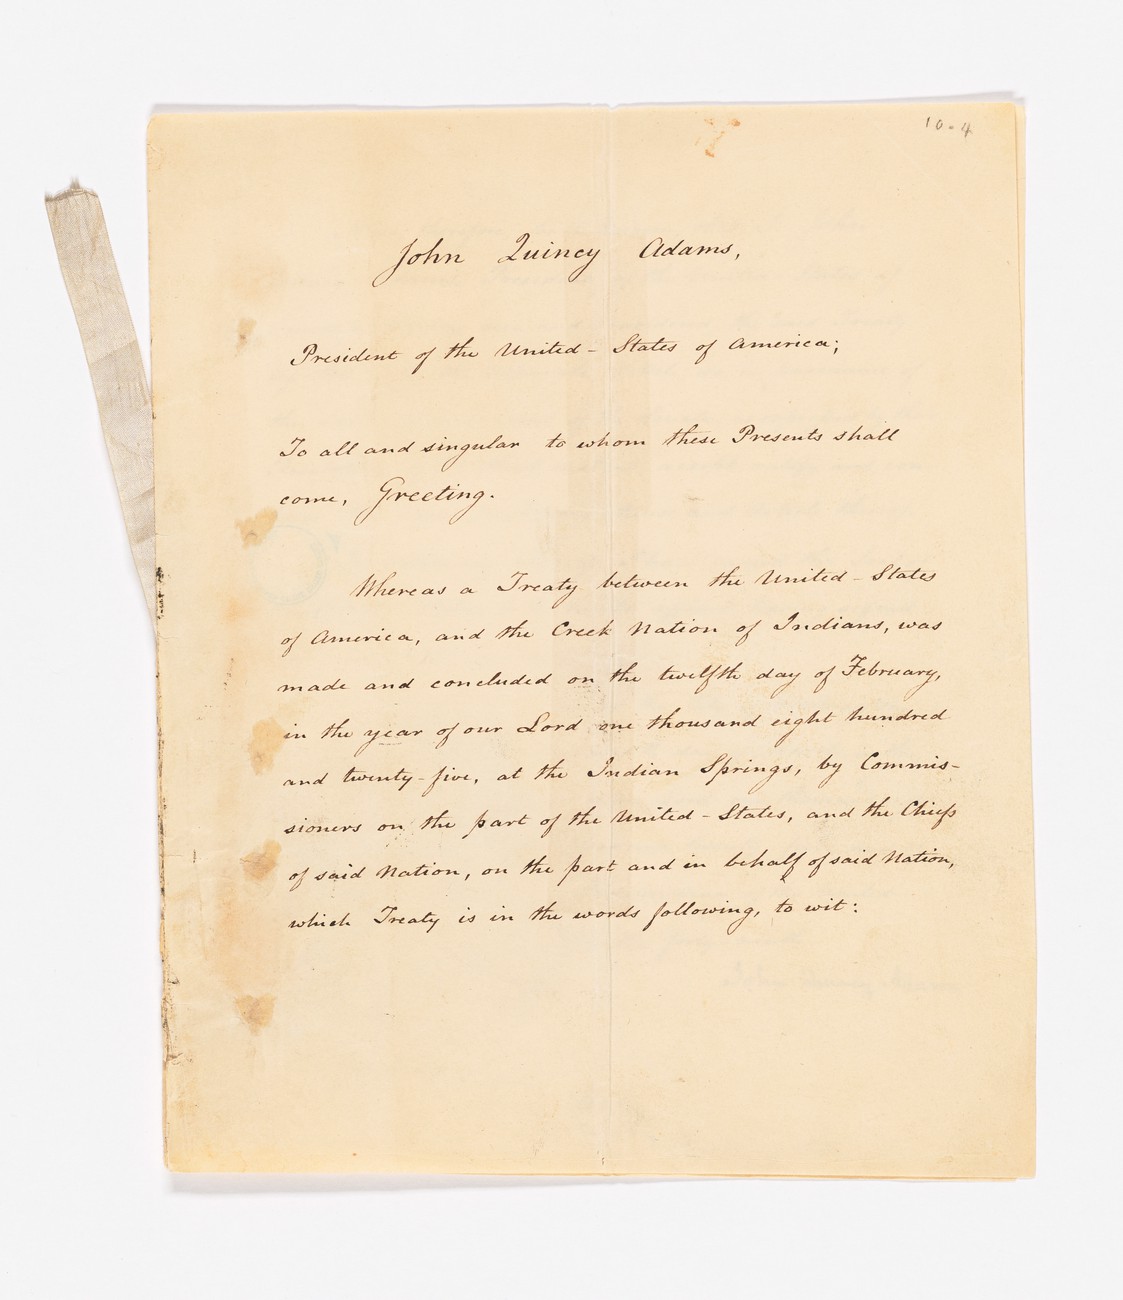 10-4
John Quincy Adams,
President of the United-States of America;
To all and singular to whom these Presents shall
come, Greeting.
Whereas a Treaty between the United-States
of America, and the Creek Nation of Indians, was
made and concluded on the twelfth day of February,
in the year of our Lord one thousand eight hundred
and twenty-five, at the Indian Springs, by Commis-
sioners on the part of the United-States, and the Chiefs
of said Nation, on the part and in behalf of said Nation,
which Treaty is in the words following, to wit: